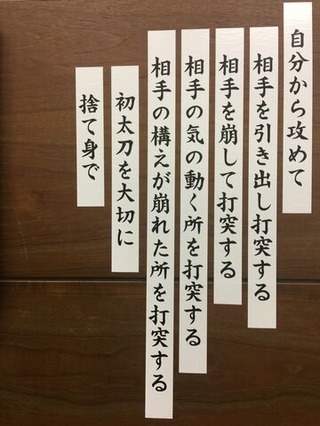 自分から攻めて
相手を引き出し打突する
相手を崩して打突する
相手の気の動く所を打突する
相手の構えが崩れた所を打突する
初太刀を大切に
捨て身で